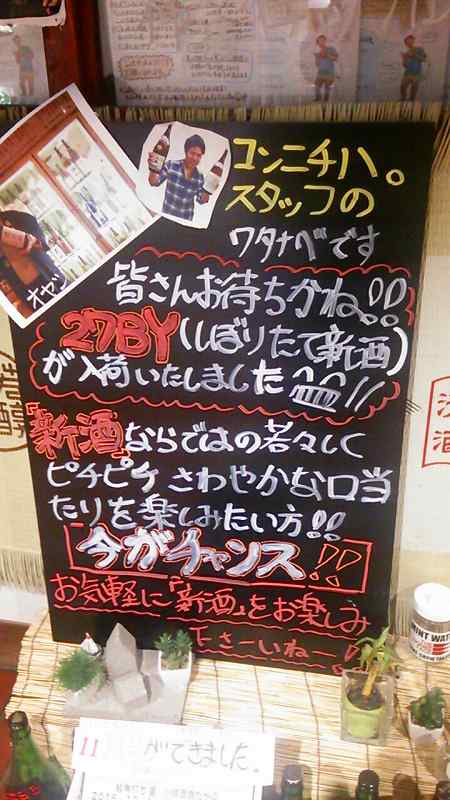 コンニチハ。
スタッフの
ワタナベです
皆さんお待ちかね!!
27BY(しぼりたて新酒)
が入荷いたしました!!
『新酒』ならではの若々しく
ピチピチ さわやかな口当
たりを楽しみたい方!!
今がチャンス!!
お気軽に「新酒」をお楽しみ
下さーいねー!
オヤジ
MINT WATER
11
ができました。